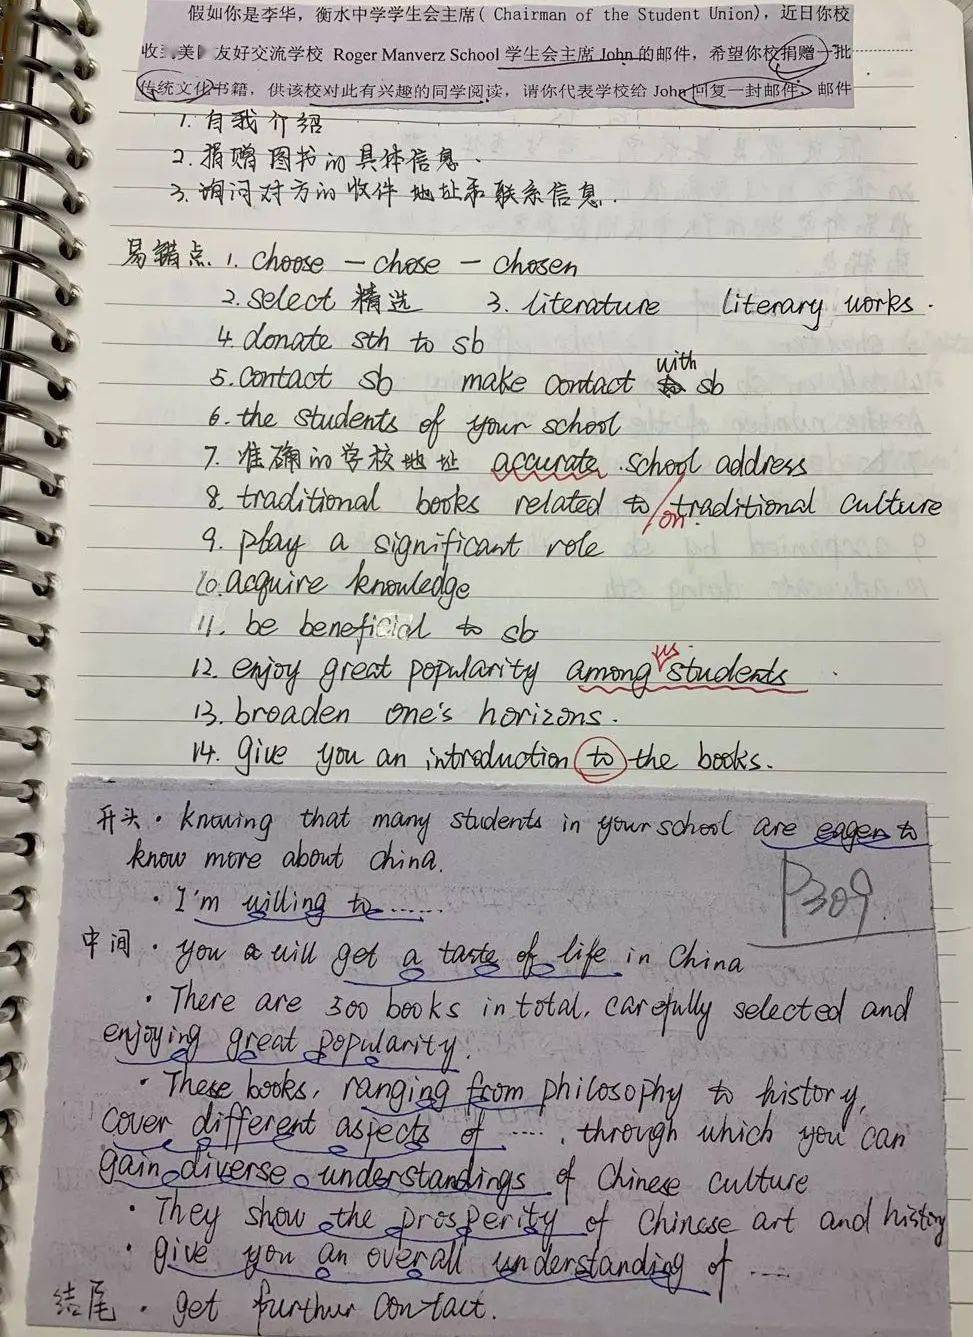 假如你是李华，衡水中学学生会主席( Chairman of the Student Union)，近日你校
收 美 友好交流学校 Roger Manverz School 学生会主席 John 的邮件，希望你校捐赠一批
传统文化书籍，供该校对此有兴趣的同学阅读，请你代表学校给 John 回复一封邮件，邮件
1. 自我介绍
2. 捐赠图书的具体信息.
3. 询问对方的收件地址和联系信息.
易错点 1. choose - chose - chosen
2. select 精选 3. literature literary works.
4. donate sth to sb
5. contact sb make contact with sb
6. the students of your school
7. 准确的学校地址 accurate school address
8. traditional books related to/on traditional culture
9. play a significant role
10. acquire knowledge
11. be beneficial to sb
12. enjoy great popularity among us students
13. broaden one's horizons.
14. give you an introduction to the books.
开头 · knowing that many students in your school are eager to
know more about china.
· I'm willing to ......
P309
中间 · you will get a taste of life in China
· There are 300 books in total, carefully selected and
enjoying great popularity.
· These books, ranging from philosophy to history,
cover different aspects of ...., through which you can
gain diverse understandings of Chinese culture
· They show the prosperity of Chinese art and history
· give you an overall understanding of ....
结尾 · get furthur contact.